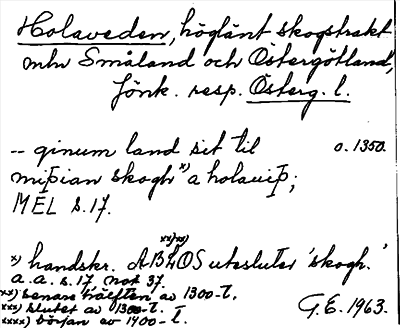 Holaveden, höglänt skogstrakt
mln Småland och Östergötland,
Jönk. resp. Österg. l.
-- ginum land sit til o. 1350.
miþian skogh x) a holauiþ;
MEL s. 17.
xx) xxx)
x) handskr. ABLOS utesluter 'skogh.'
a. a. s. 17, not 37.
xx) senare hälften av 1300-t.
xxx) slutet av 1300-t. G.E. 1963.
xxxx) början av 1400-t.